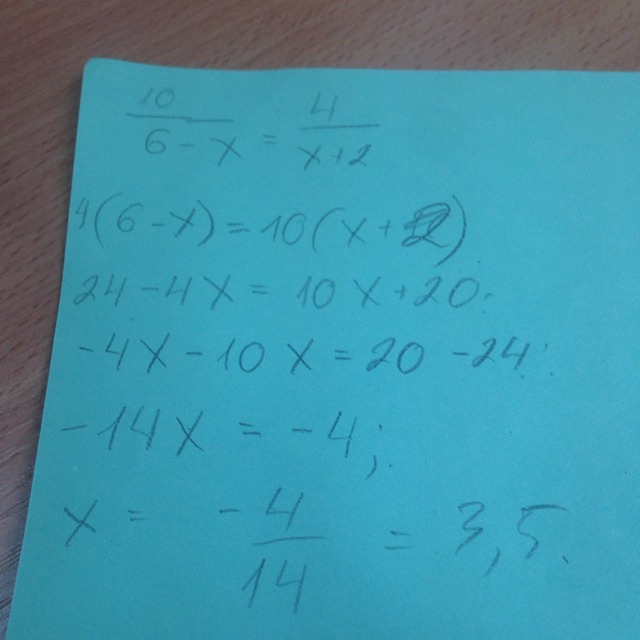 10/(6-x) = 4/(x+2)
4(6-x)=10(x+2)
24-4x=10x+20;
-4x-10x=20-24;
-14x=-4;
x= -4/14 = 3,5.